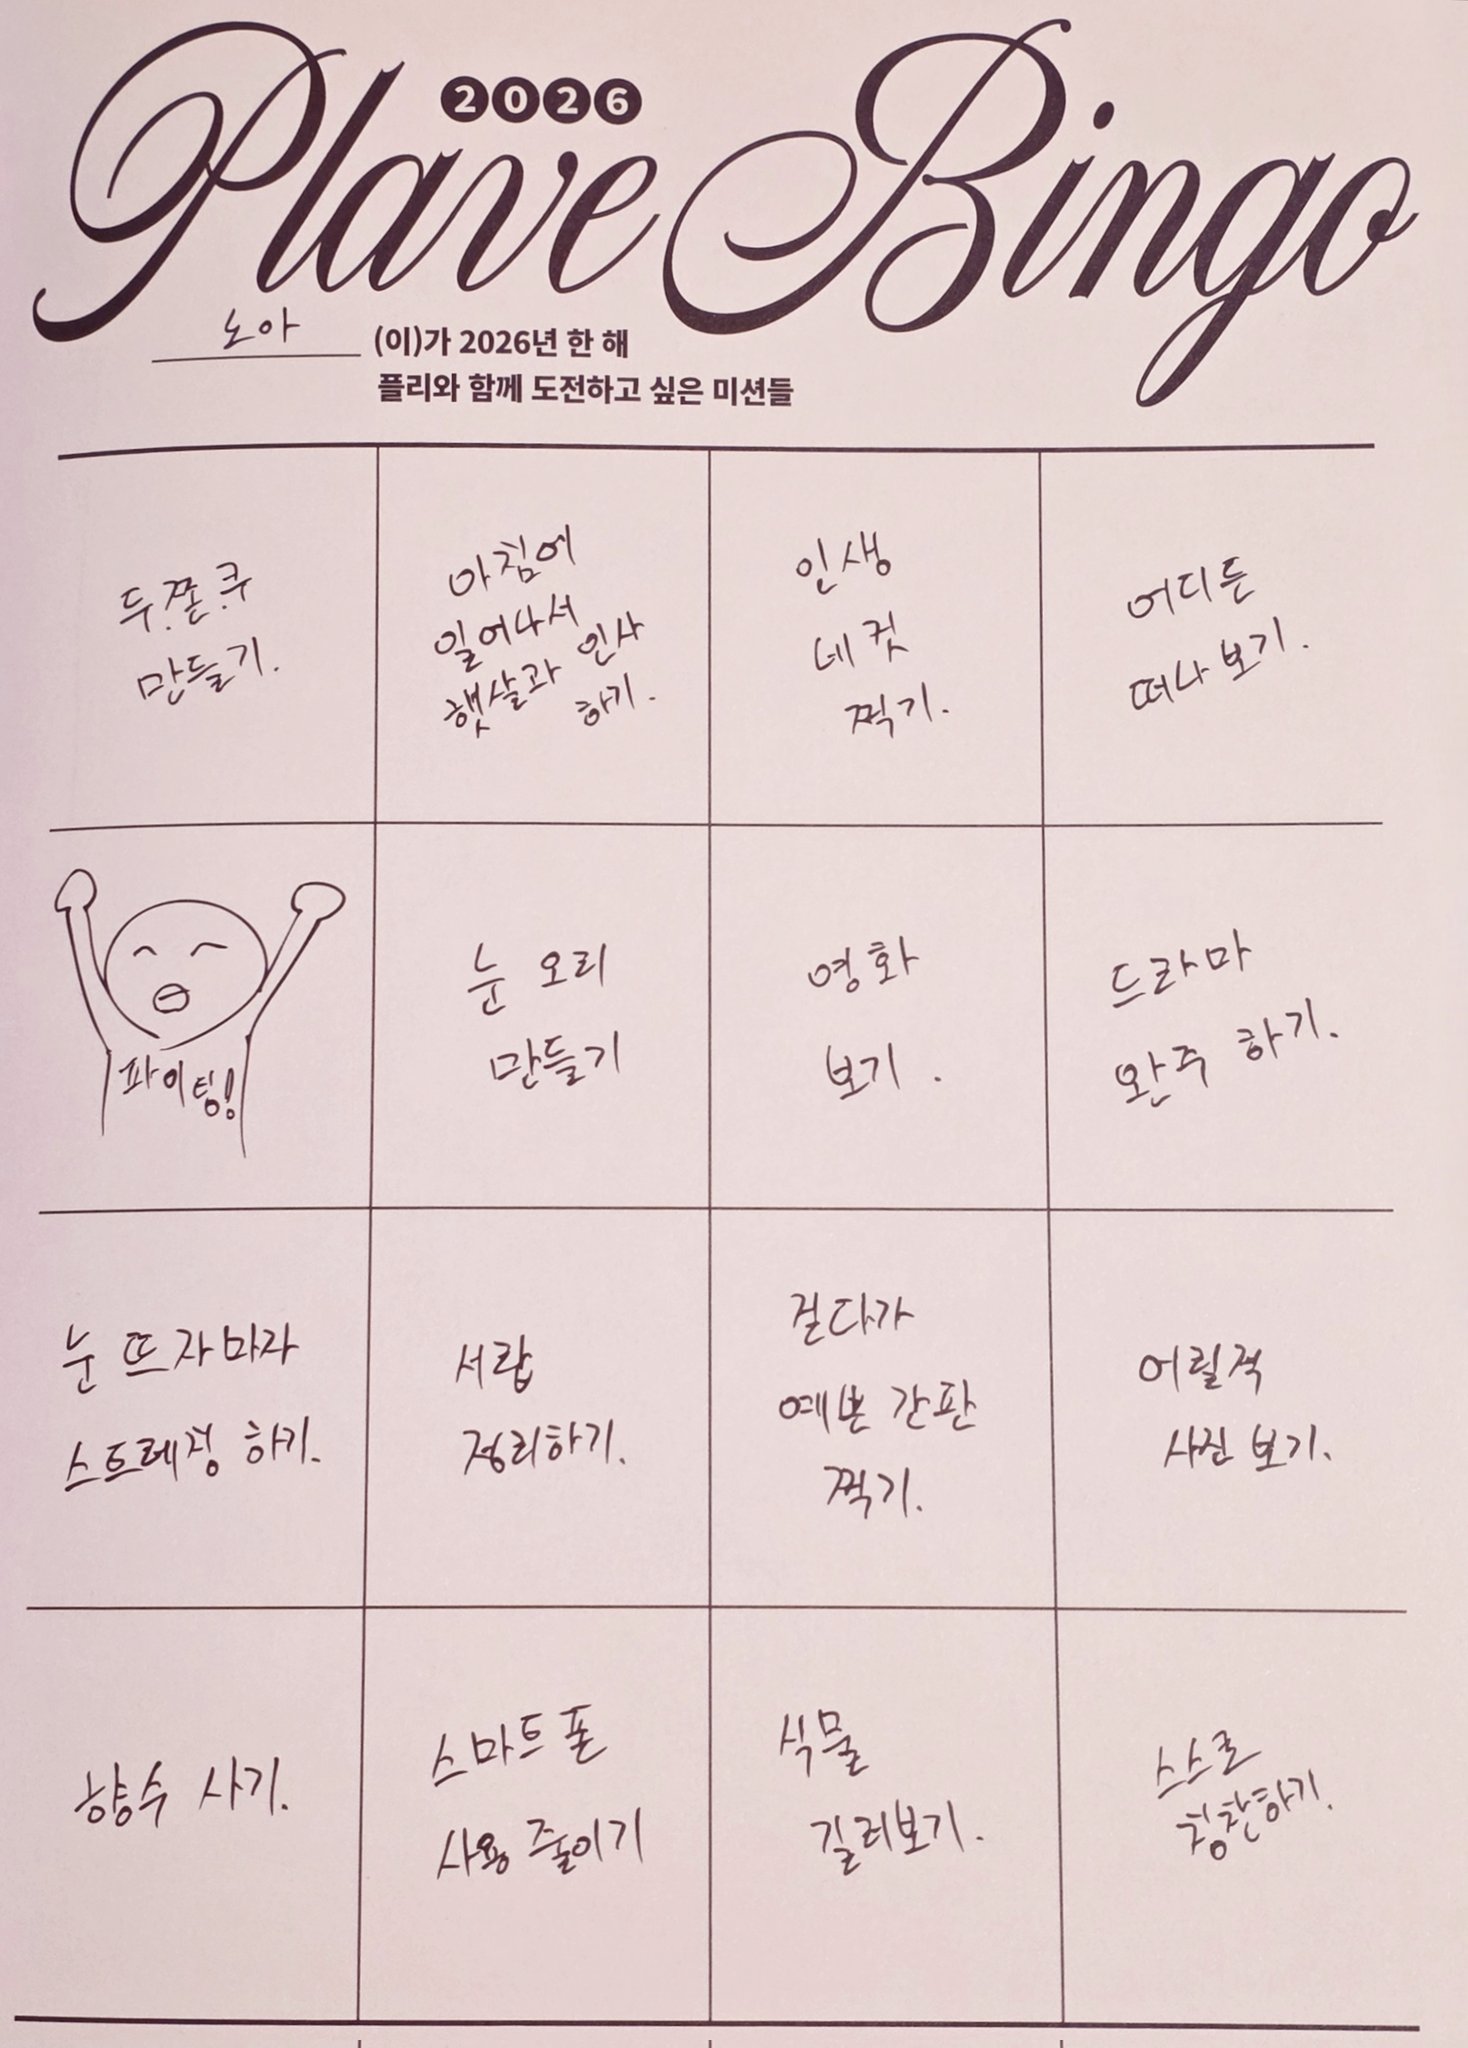 2026
Plave Bingo
노아 (이)가 2026년 한 해
플리와 함께 도전하고 싶은 미션들
두.쫀.쿠
만들기.
아침에
일어나서
햇살과 인사
하기.
인생
네컷
찍기.
어디든
떠나보기.
파이팅!
눈 오리
만들기
영화
보기.
드라마
완주 하기.
눈 뜨자마자
스트레칭 하기.
서랍
정리하기.
걷다가
예쁜 간판
찍기.
어릴적
사진 보기.
향수 사기.
스마트폰
사용 줄이기
식물
길러보기.
스스로
칭찬하기.